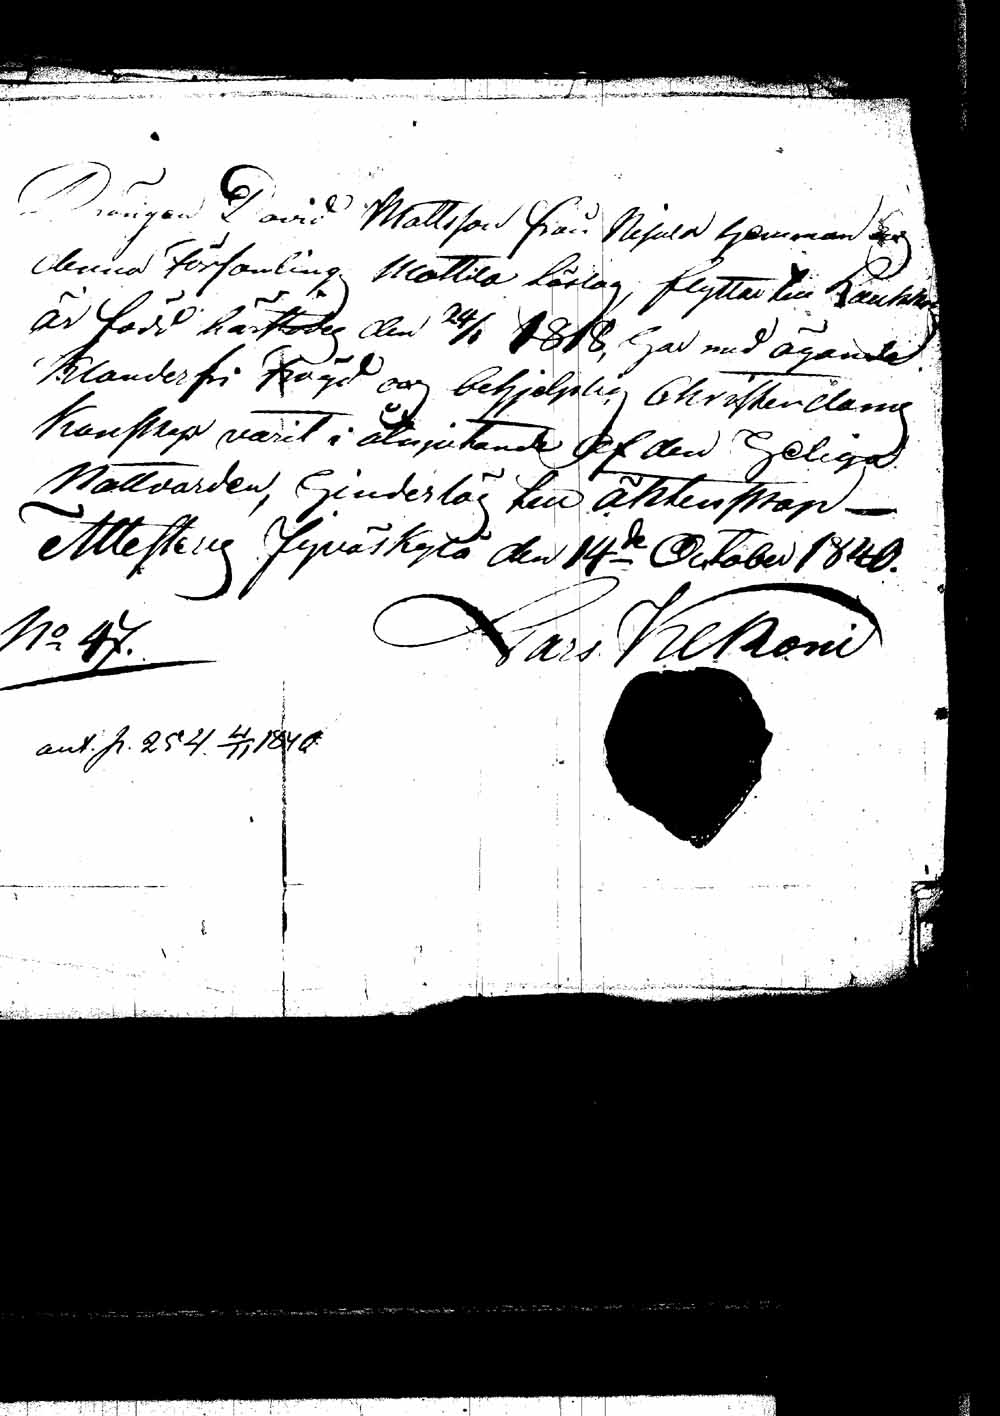 Drängen David Mattsson från Nisula hemman
denna Församling, Mattila låslag, flyttar till Laukka
är född härstädes den 24/1 1818, har med ägande
Klanderfri Frögd och behjelplig Christendoms
Kunskap varit i åtnjutande af den Heliga
Nattvarden, Hinderlös till äktenskap —
Attesterer Jyväskylä den 14de October 1840.
No 47. Lars Kekoni
ant. p. 254. 4/11 1840